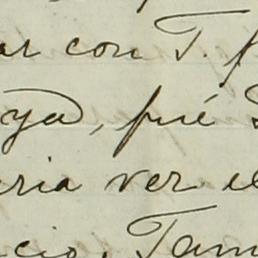 ar con T. f
ya, fué
ria ver el
cio, Tam